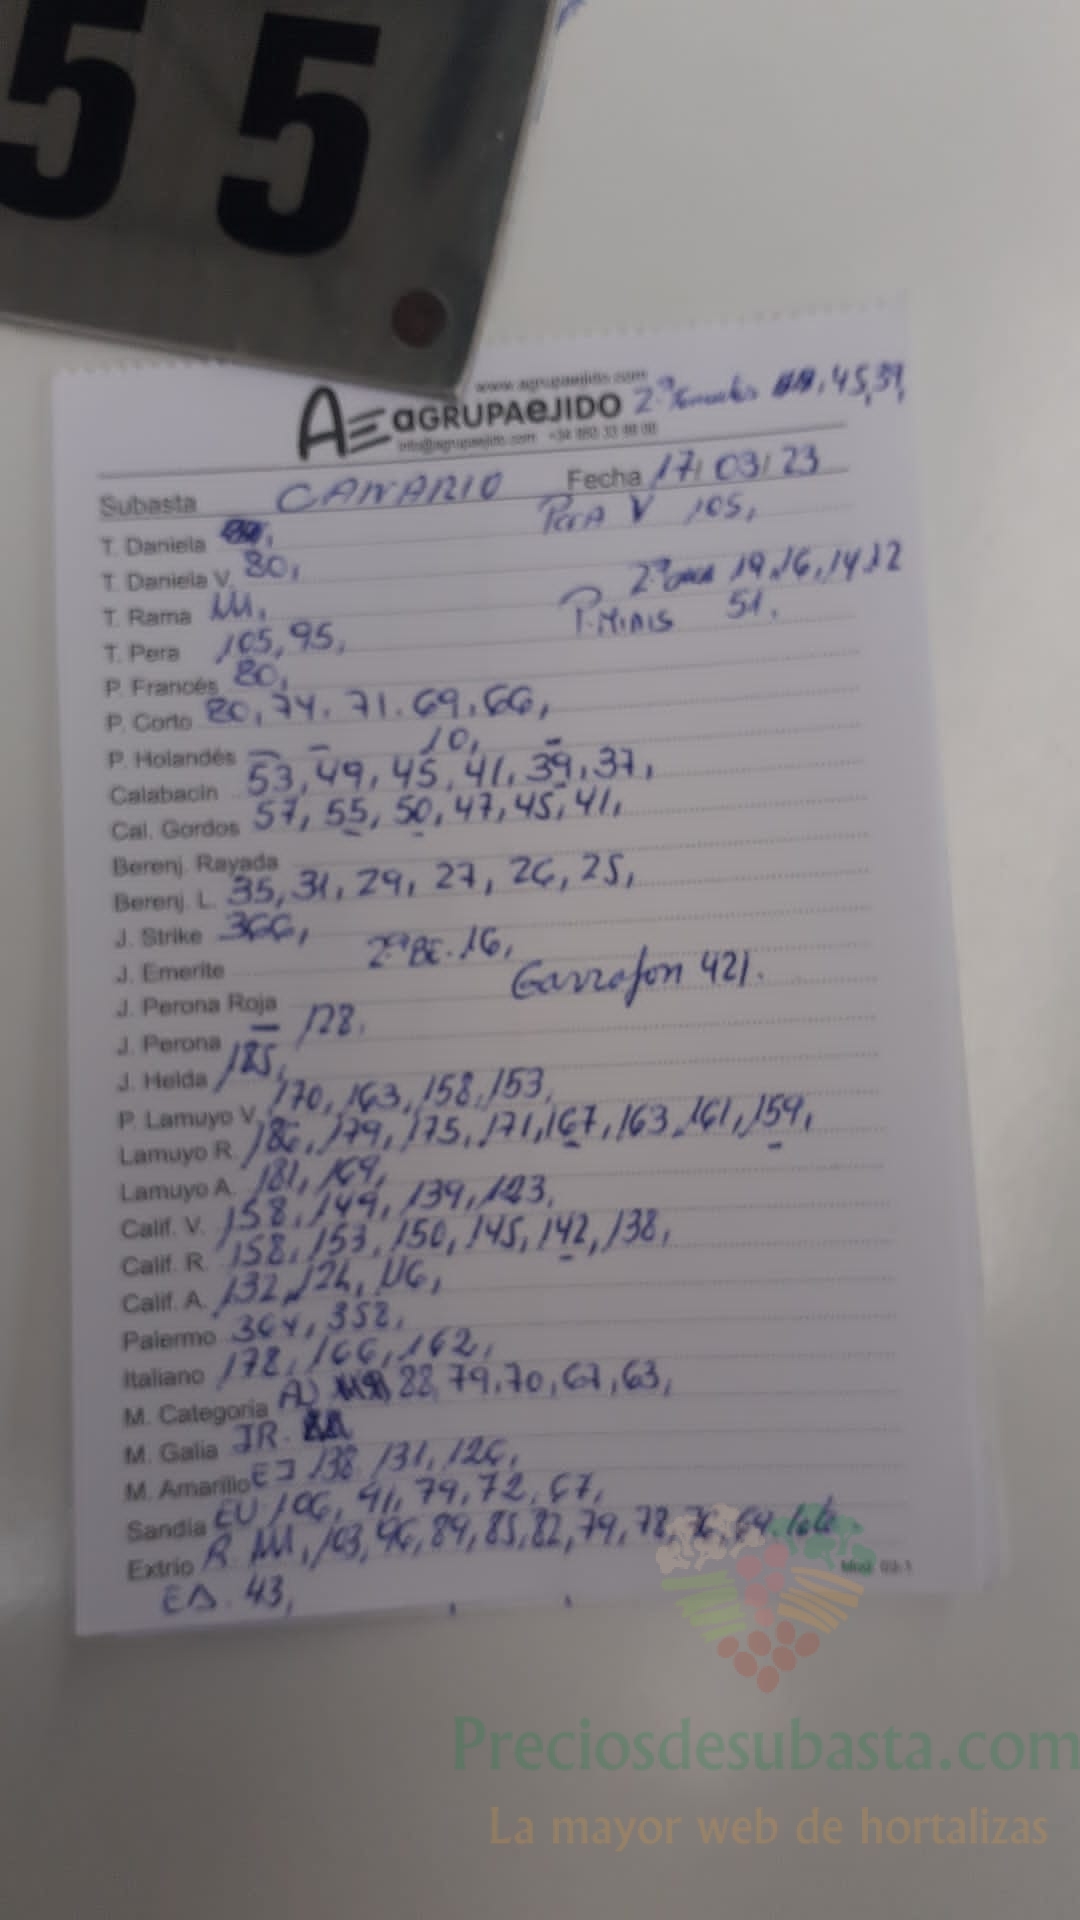 55
www.agrupaejido.com
AE aGRUPAeJIDO 2ª 45, 39,
info@agrupaejido.com +34 950 33 98 00
Subasta CANARIO Fecha 17/03/23
T. Daniela
PERA V 105,
T. Daniela V. 80,
2ª 19, 16, 14, 12
T. Rama 111,
P. MINIS 51.
T. Pera 105, 95,
P. Francés 80,
P. Corto 80, 74. 71. 69, 66,
P. Holandés 10,
Calabacin 53, 49, 45, 41, 39, 37,
Cal. Gordos 57, 55, 50, 47, 45, 41,
Berenj. Rayada
Berenj. L. 35, 31, 29, 27, 26, 25,
J. Strike 366,
J. Emerite 2ª BE. 16,
Garrafon 421.
J. Perona Roja
J. Perona 128.
J. Helda 185,
P. Lamuyo V. 170, 163, 158, 153,
Lamuyo R. 186, 179, 175, 171, 167, 163, 161, 159,
Lamuyo A. 181, 169,
Calif. V. 158, 149, 139, 123,
Calif. R. 158, 153, 150, 145, 142, 138,
Calif. A. 132, 124, 116,
Palermo 364, 352,
Italiano 178, 166, 162,
M. Categoria 88, 79, 70, 67, 63,
M. Galia JR.
M. Amarillo EJ 138. 131, 126,
Sandia EU 106, 91, 79, 72, 67,
Extrio R. 111, 103, 96, 89, 85, 82, 79, 78, 76, 69.
43,
Mod. 02-1
Preciosdesubasta.com
La mayor web de hortalizas